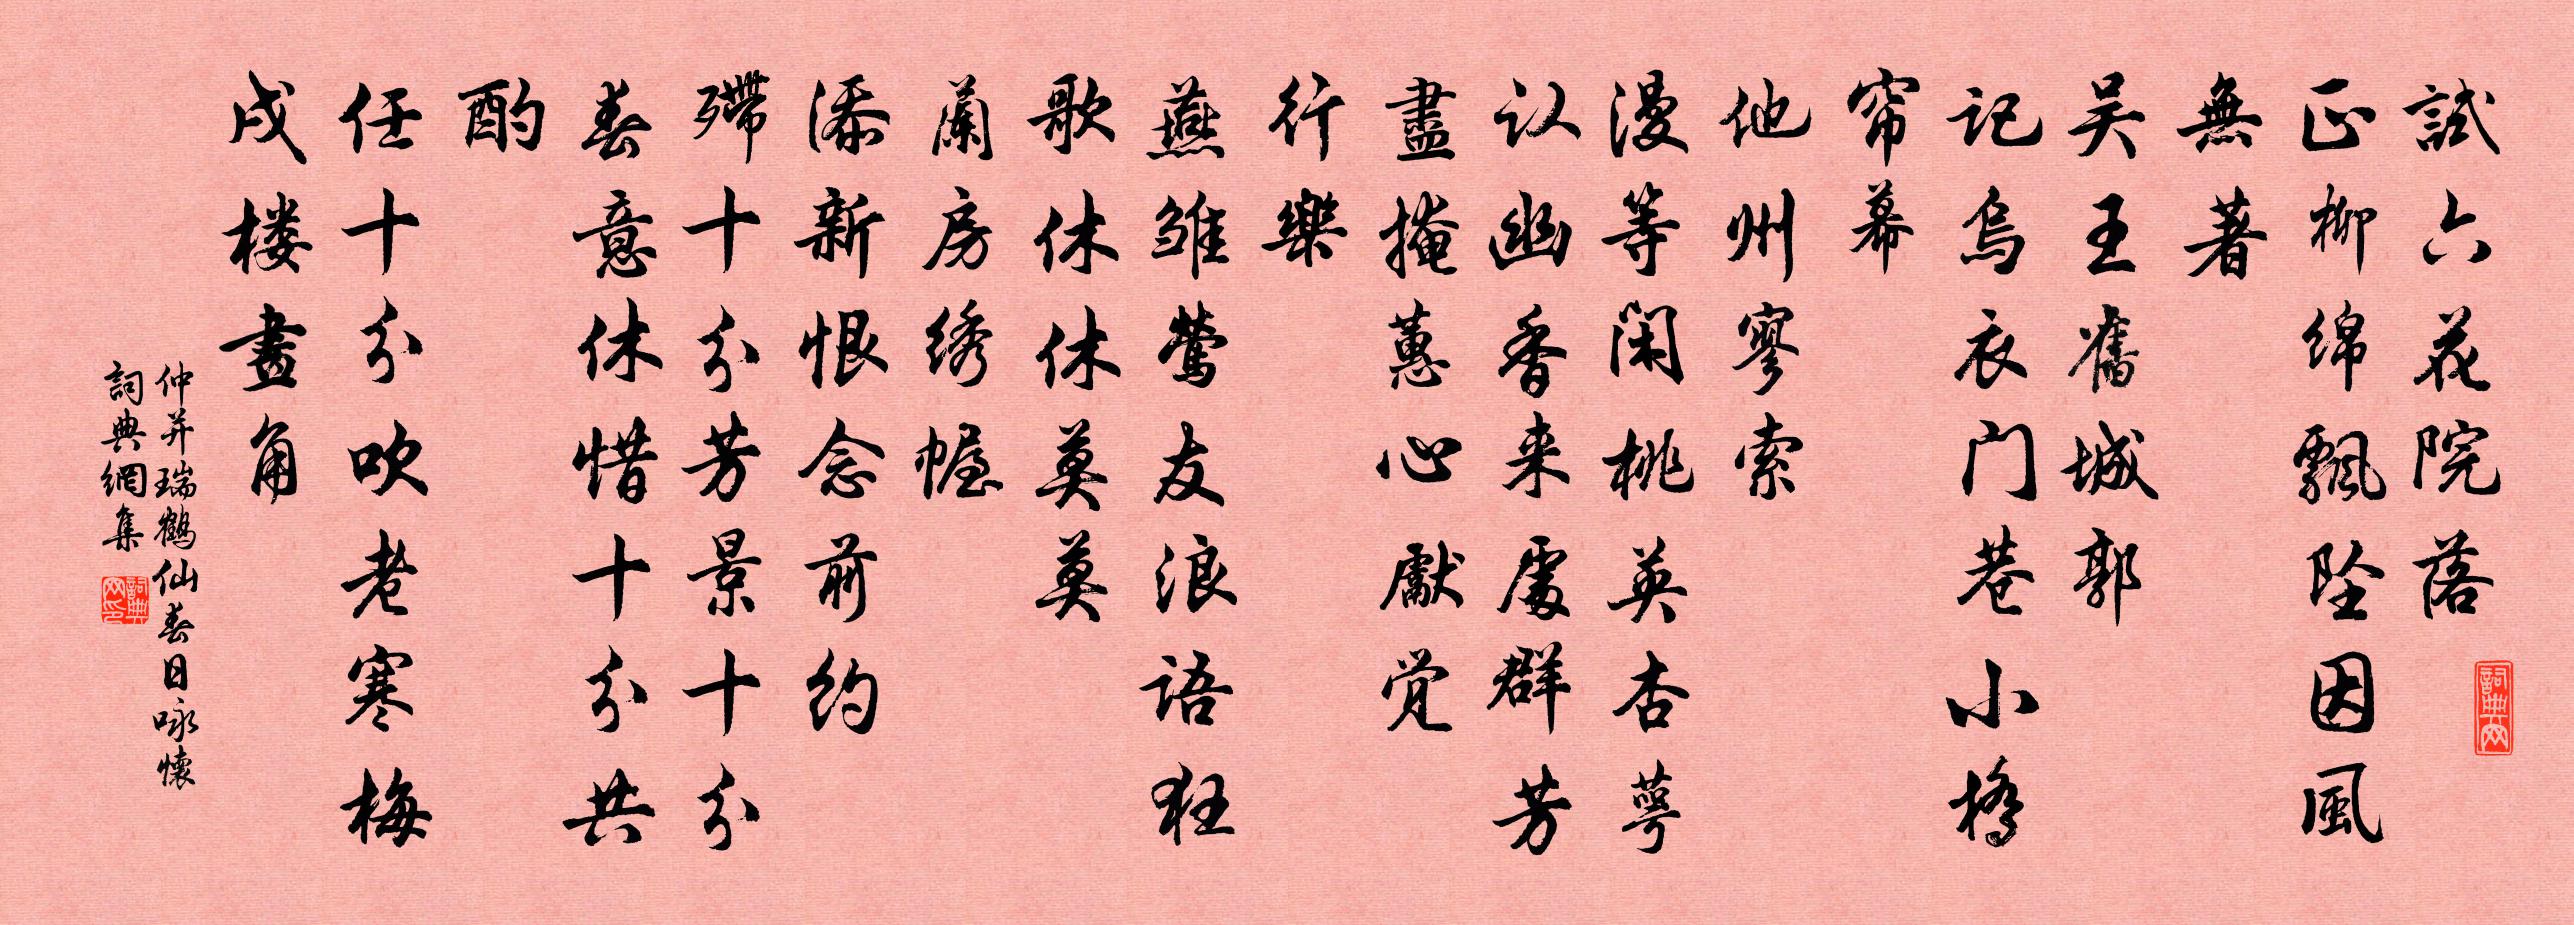 試六花院落
正柳绵飄坠因風
無著
吴王舊城郭
记烏衣门巷小橋
帘幕
他州寥索
漫等闲桃英杏萼
认幽香来處群芳
盡掩蕙心獻觉
行樂
燕雏莺友浪语狂
歌休休莫莫
蘭房绣幄
添新恨念前约
殢十分芳景十分
春意休惜十分共
酌
任十分吹老寒梅
戍楼畫角
仲并瑞鹤仙春日咏懷
詞典網集
詞典网
詞典网印